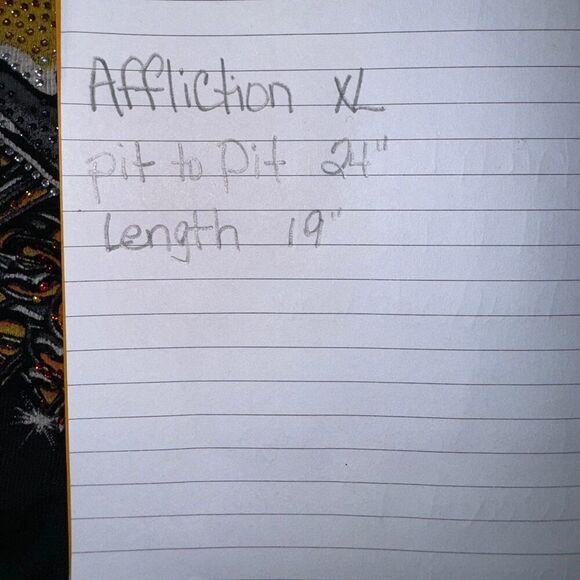 Affliction XL
pit to pit 24"
Length 19"